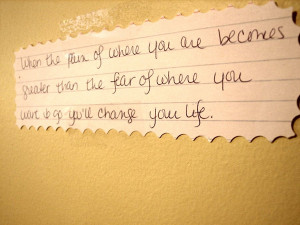 When the pain of where you are becomes
greater than the fear of where you
want to go you'll change your life.